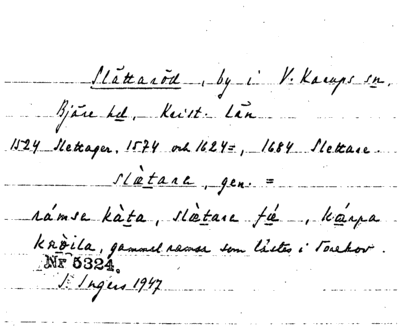 Slättaröd, by i V. Karups sn,
Bjäre hd, Krist. län
1524 Slettager, 1574 och 1624 =, 1684 Slettare.
slætara, gen. =
rámsa kàta, slætara fæ, kárpa
kröila, gammal ramsa som lästes i Torekov.
Nr 5324.
S. Ingers 1947